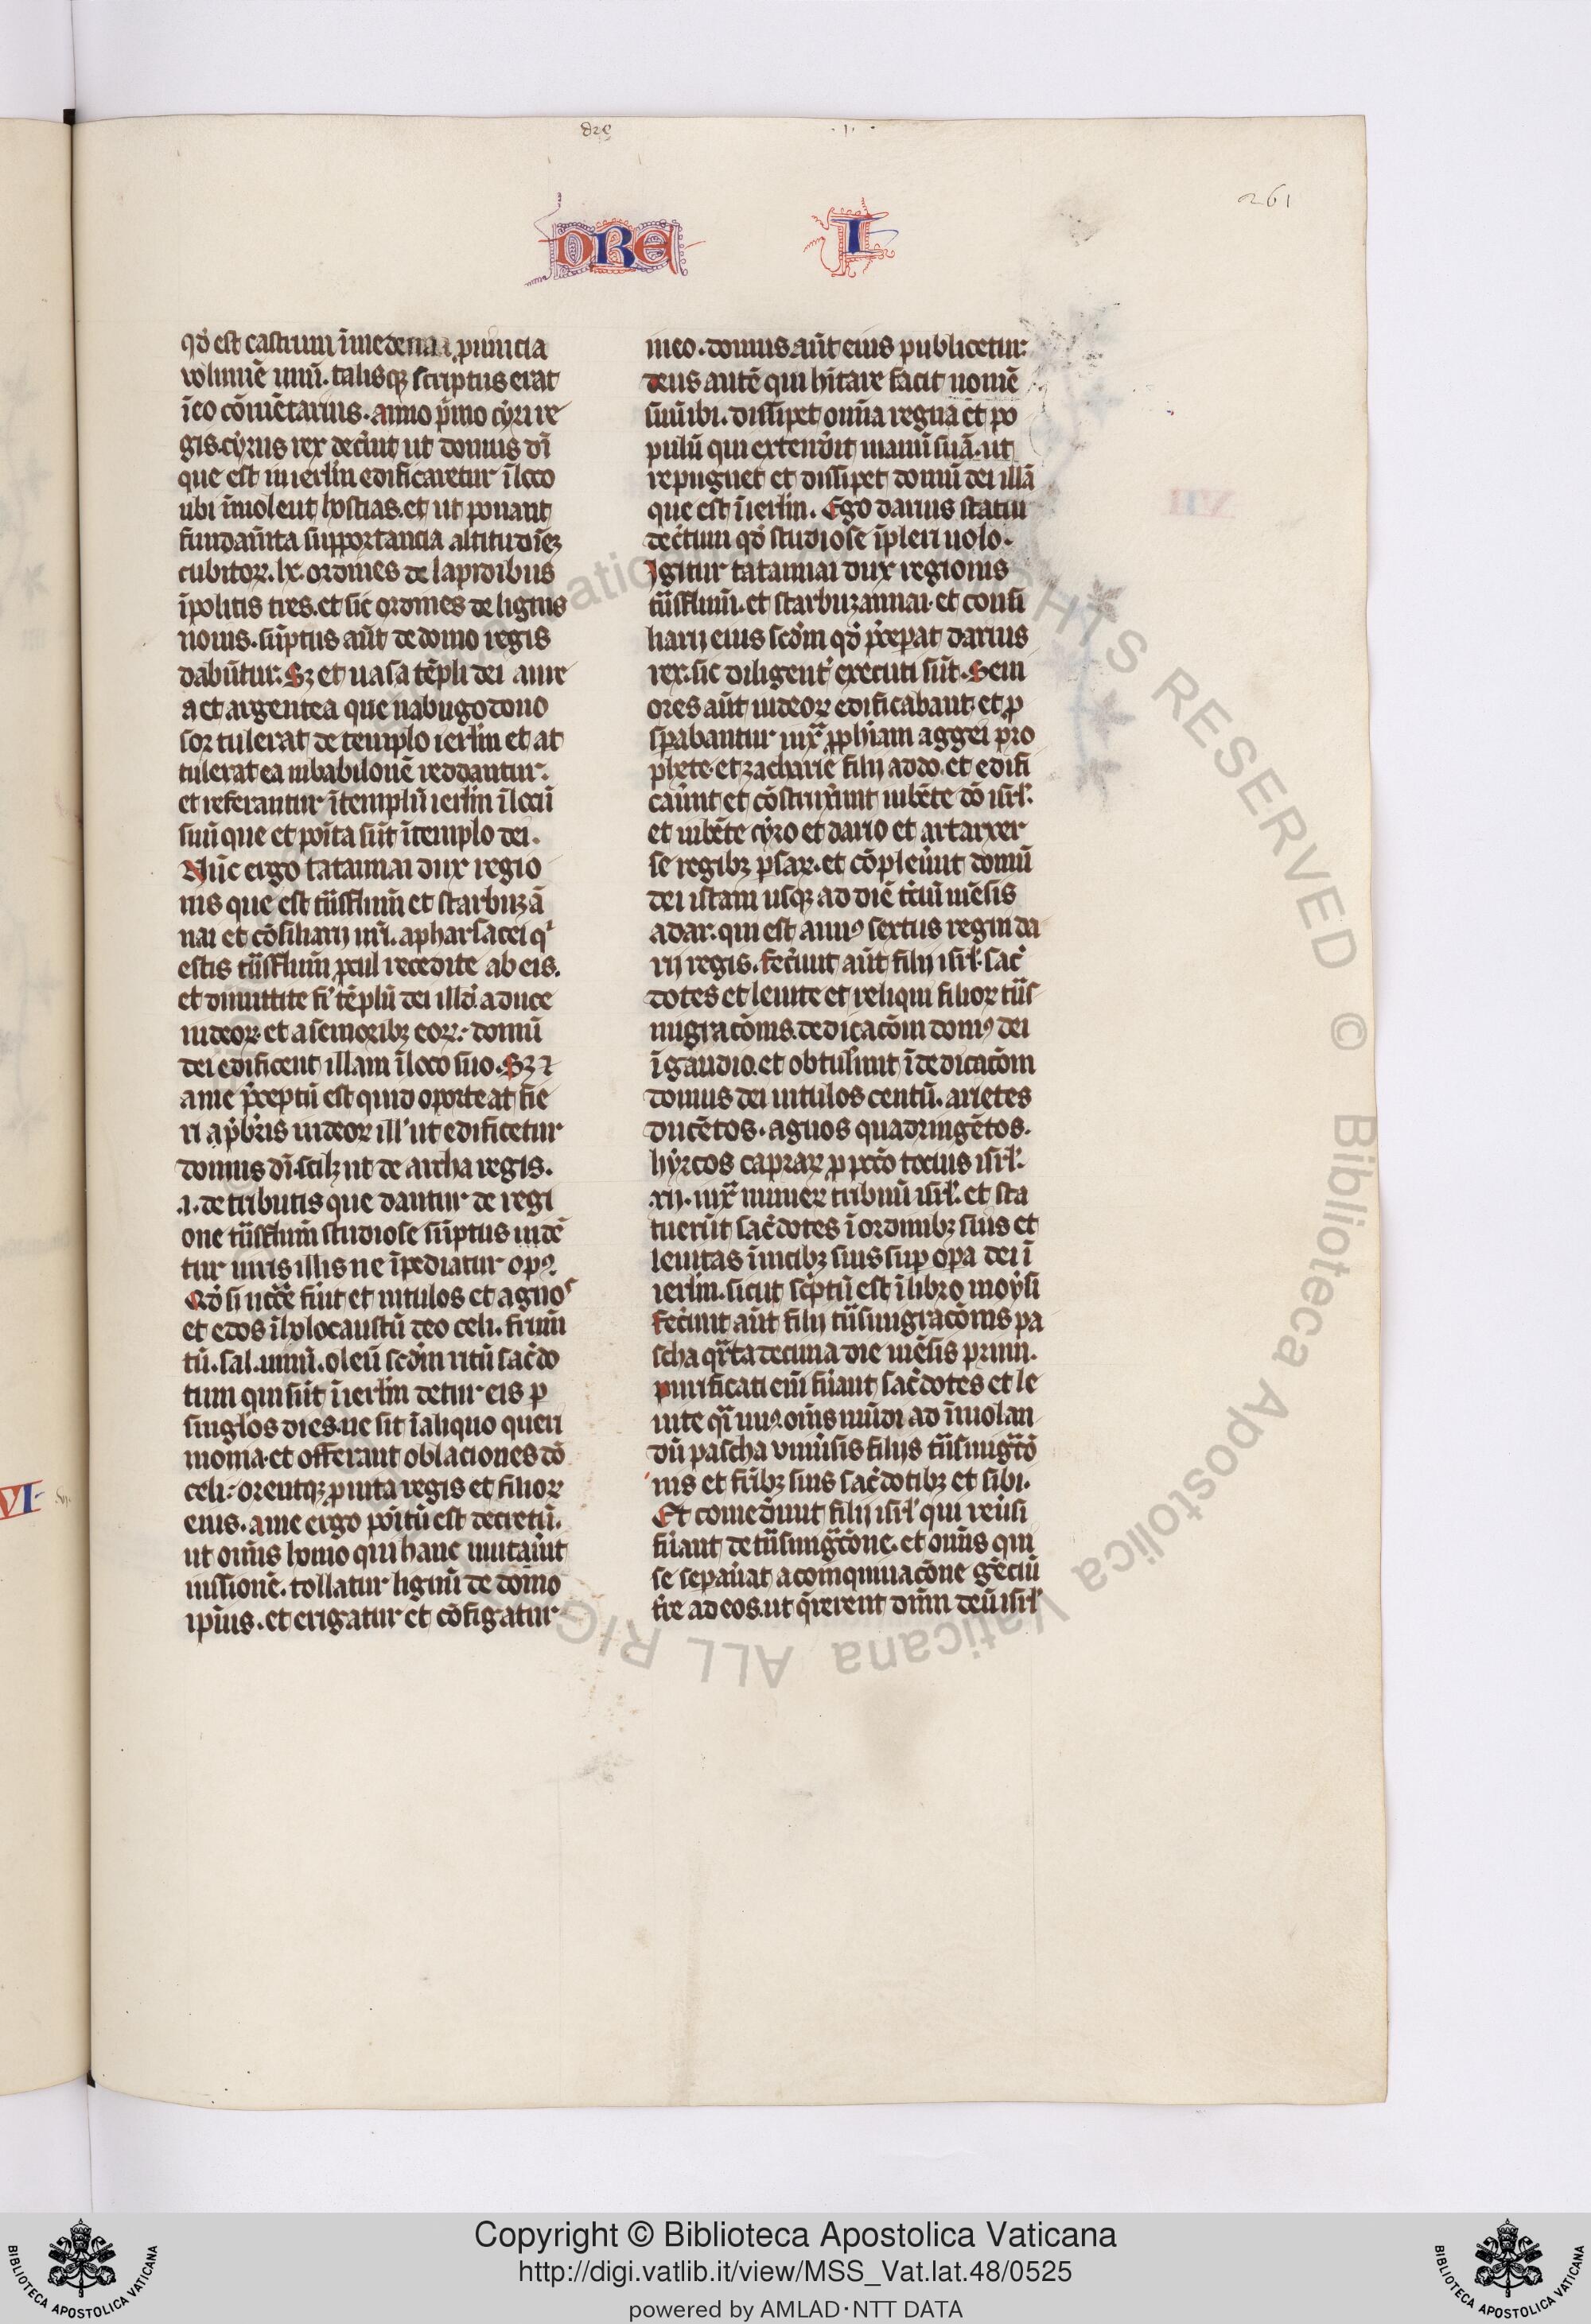 dre
.I.
261
DRE
I
qď est castrum ī medena ꝓuincia
volumē unū. talisqꝫ scriptus erat
ī eo cōmētarius. anno pͥmo cyri re
gis. cyrus rex decͣuit ut domus dī
que est in ierlm̄ edificaretur ī loco
ubi īmolent hostias. et ut ponant
fundam̄ta supportancia altitudīeꝫ
cubitoꝝ. lx. ordines de lapidibus
īpolitis tres. et sic ordines de lignis
nouis. sūptus aūt de domo regis
dabūtur: Sꝫ et uasa tēpli dei aure
a et argentea que nabugodono
sor tulerat de templo ierlm̄ et at
tulerat ea in babilonē reddantur.
et referantur ī templū ierlm̄ ī locū
suū que et poīta sūt ī templo dei.
Nūc ergo tatannai dux regio
nis que est tͣnsflum̄ et starbuzā
nai et cōsiliarij urī. apharsacei qͥ
estis tͣnsflum̄ ꝓcul recedite ab eis.
et dimittite fiͥ tēplū dei illď. a duce
iudeoꝝ. et a senioribꝫ eoꝝ: domū
dei edificent illam ī loco suo. Sꝫ ⁊
a me p̄ceptū est quid oporteat fie
ri a pͥbrīs iudeoꝝ ill' ut edificetur
domus dī. scilꝫ ut de archa regis.
.i. de tributis que dantur de regi
one tͣnsflum̄ studiose sūptus indē
tur uiris illis ne īpediatur opꝰ.
Qď si necc̄e fūit et uitulos et agnos
et edos ī holocaustū deo celi. frum̄
tū. sal. uinū. oleū scďm ritū sac̄do
tum qui sūt ī ierlm̄ detur eis ꝑ
singlos dies. ne sit ī aliquo queri
monia. et offerant oblaciones dō
celi: orentqꝫ ꝓ uita regis et filioꝝ
eius. a me ergo poītū est decretū.
ut om̄is homo qui hanc mutaūit
iussionē. tollatur lignū de domo
ipīus. et erigatur et cōfigatur
in eo. domus aūt eius publicetur.
deus autē qui hītare facit nomē
suū ibi. dissipet om̄ia regna et po
pulū qui extendͤit manū suā. ut
repugnet et dissipet domū dei illā
que est ī ierlm̄. Ego darius statui
dec̄tum qď studiose īpleri uolo.
Igitur tatannai dux regionis
tͣnsflum̄. et starbuzannai. et consi
liarij eius scďm qď p̄cepat darius
rex. sic diligent͛ executi sūt. Seni
ores aūt iudeoꝝ edificabant. et ꝓ
sp̄abantur iuxͣ ꝓphiam aggei pro
phete. et zacharie filij addo. et edifi
caūunt et cōstruxͤunt iubēte dō isrl'.
et iubēte cyro et dario et artarxer
se regibꝫ psaꝝ. et cōpleūunt domū
dei istam usqꝫ ad diē tͤciū mēsis
adar. qui est annꝰ sextus regni da
rij regis. fec͛unt aūt filij isrl'. sac͛
dotes et leuite et reliqui filioꝝ tͣns
migracōnis. dedicacōm domꝰ dei
ī gaudio. et obtul͛unt ī dedicacōm
domus dei uitulos centū. arietes
ducētos. agnos quadringētos.
hyrcos capraꝝ ꝓ pccō tocius isrl'.
.xij. iuxͣ numeꝝ tribuū isrl'. et sta
tuerūt sac͛dotes ī ordinibꝫ suis et
leuitas ī uicibꝫ suis sup opa dei ī
ierlm̄. sicut scͥptū est ī libro moysi
Fec͛unt aūt filij tͣnsmigracōnis pa
scha qͣrta decima die mēsis primi.
purificati eni fūant sac͛dotes et le
uite qͣi unꝰ. om̄s mūdi ad īmolan
dū pascha uniūsis filijs tͣnsmigͣcō
nis et fͣribꝫ suis sac͛dotibꝫ et sibi.
Et comedͤunt filij isrl' qui reūsi
fūant de tͣnsmigͣcōne. et om̄is qui
se sepaūat a coinquinacōne gēciū
tͤre ad eos. ut qͥrerent dnm̄ deū isrl'
VI
Copyright © Biblioteca Apostolica Vaticana
http://digi.vatlib.it/view/MSS_Vat.lat.48/0525
powered by AMLAD·NTT DATA
BIBLIOTECA APOSTOLICA VATICANA
BIBLIOTECA APOSTOLICA VATICANA
© Biblioteca Apostolica Vaticana ALL RIGHTS RESERVED